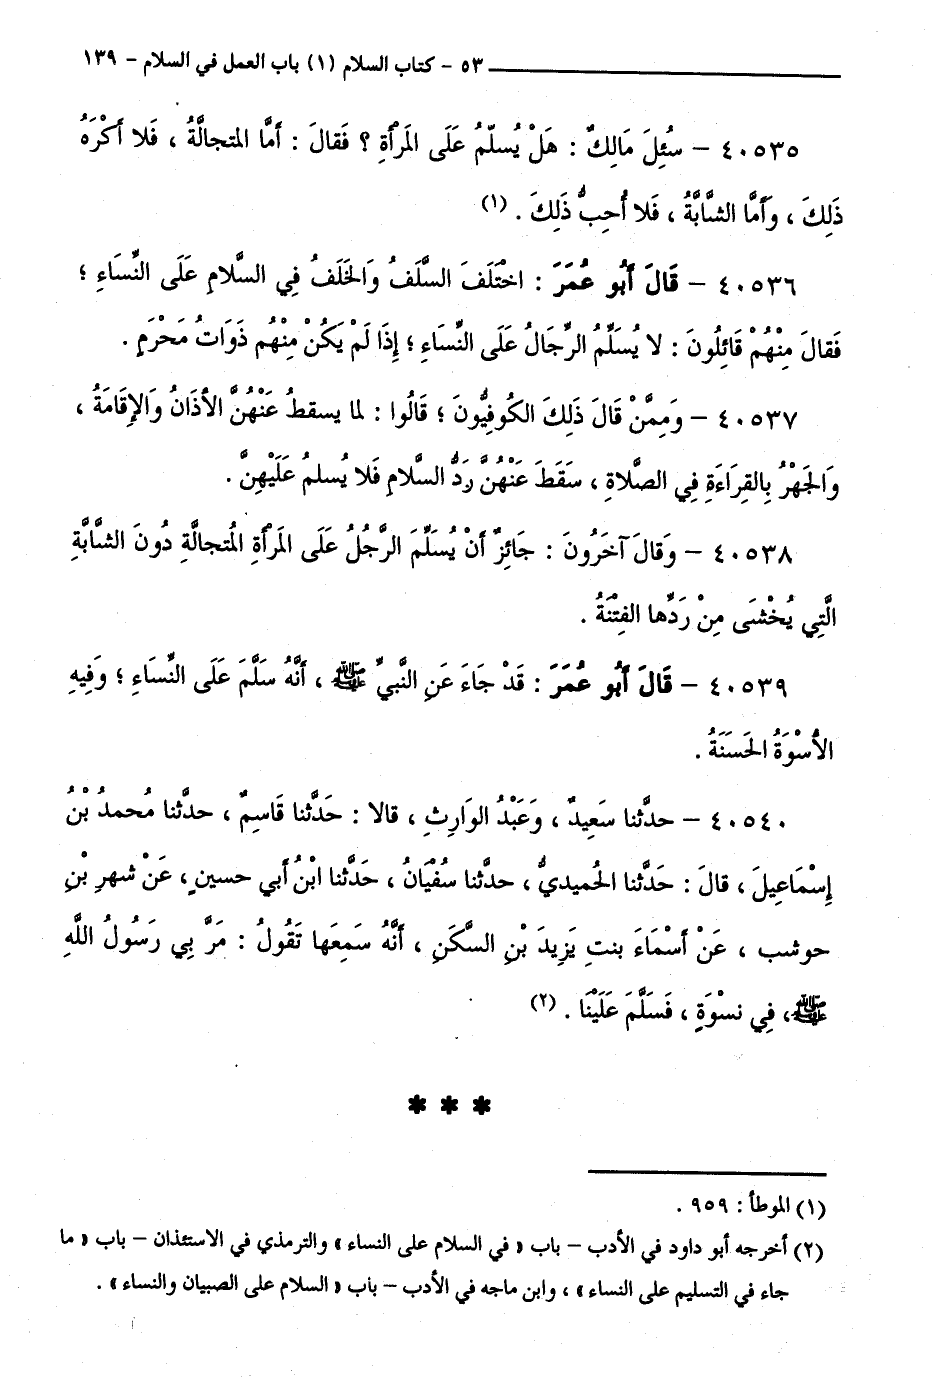 ٥٣ - كتاب السلام (١) باب العمل في السلام - ١٣٩
٤٠٥٣٥ - سُئِلَ مَالِكٌ : هَلْ يُسلّمُ عَلَى المَرْأَةِ ؟ فَقالَ : أَمَّا المتجالَّةُ ، فَلا أَكْرَهُ
ذَلِكَ ، وَأَمَّا الشَّابَّةُ ، فَلا أُحِبُّ ذَلِكَ . (١)
٤٠٥٣٦ - قَالَ أَبُو عُمَرَ : اخْتَلَفَ السَّلَفُ وَالخَلَفُ فِي السَّلامِ عَلَى النِّسَاءِ ؛
فَقالَ مِنْهُمْ قَائِلُونَ : لا يُسَلِّمُ الرِّجَالُ عَلَى النِّسَاءِ ؛ إِذَا لَمْ يَكُنْ مِنْهُم ذَوَاتُ مَحْرَمٍ .
٤٠٥٣٧ - وَمِمَّنْ قَالَ ذَلِكَ الكُوفِيُّونَ ؛ قَالُوا : لما يسقطُ عَنْهُنَّ الأَذَانُ وَالإِقَامَةُ ،
وَالجَهْرُ بِالقِرَاءَةِ فِي الصَّلاةِ ، سَقَطَ عَنْهُنَّ رَدُّ السَّلامِ فَلا يُسلمُ عَلَيْهِنَّ .
٤٠٥٣٨ - وَقالَ آخَرُونَ : جَائِزٌ أَنْ يُسَلِّمَ الرَّجُلُ عَلَى المَرْأَةِ المُتجالَّةِ دُونَ الشَّابَّةِ
الَّتِي يُخْشَى مِنْ رَدِّها الفِتْنَةُ .
٤٠٥٣٩ - قَالَ أَبُو عُمَرَ : قَدْ جَاءَ عَنِ النَّبيِّ ﷺ ، أَنَّهُ سَلَّمَ عَلَى النِّسَاءِ ؛ وَفِيهِ
الأُسْوَةُ الحَسَنَةُ .
٤٠٥٤٠ - حدثَّنا سَعِيدٌ ، وَعَبْدُ الوَارِثِ ، قالا : حَدَّثنا قَاسِمٌ ، حدثَّنا مُحمدُ بْنُ
إِسْمَاعِيلَ ، قالَ : حَدَّثنا الحُميديُّ ، حدثَّنا سُفْيَانُ ، حَدَّثنا ابْنُ أَبي حسينٍ ، عَنْ شهرِ بْنِ
حوشب ، عَنْ أَسْمَاءَ بنتِ يَزِيدَ بْنِ السَّكَنِ ، أَنَّهُ سَمِعَها تَقُولُ : مَرَّ بِي رَسُولُ اللَّهِ
ﷺ، فِي نسْوَةٍ ، فَسَلَّمَ عَلَيْنَا . (٢)
* * *
(١) الموطأ : ٩٥٩ .
(٢) أخرجه أبو داود في الأدب - باب « في السلام على النساء » والترمذي في الاستئذان - باب « ما
جاء في التسليم على النساء » ، وابن ماجه في الأدب - باب « السلام على الصبيان والنساء » .